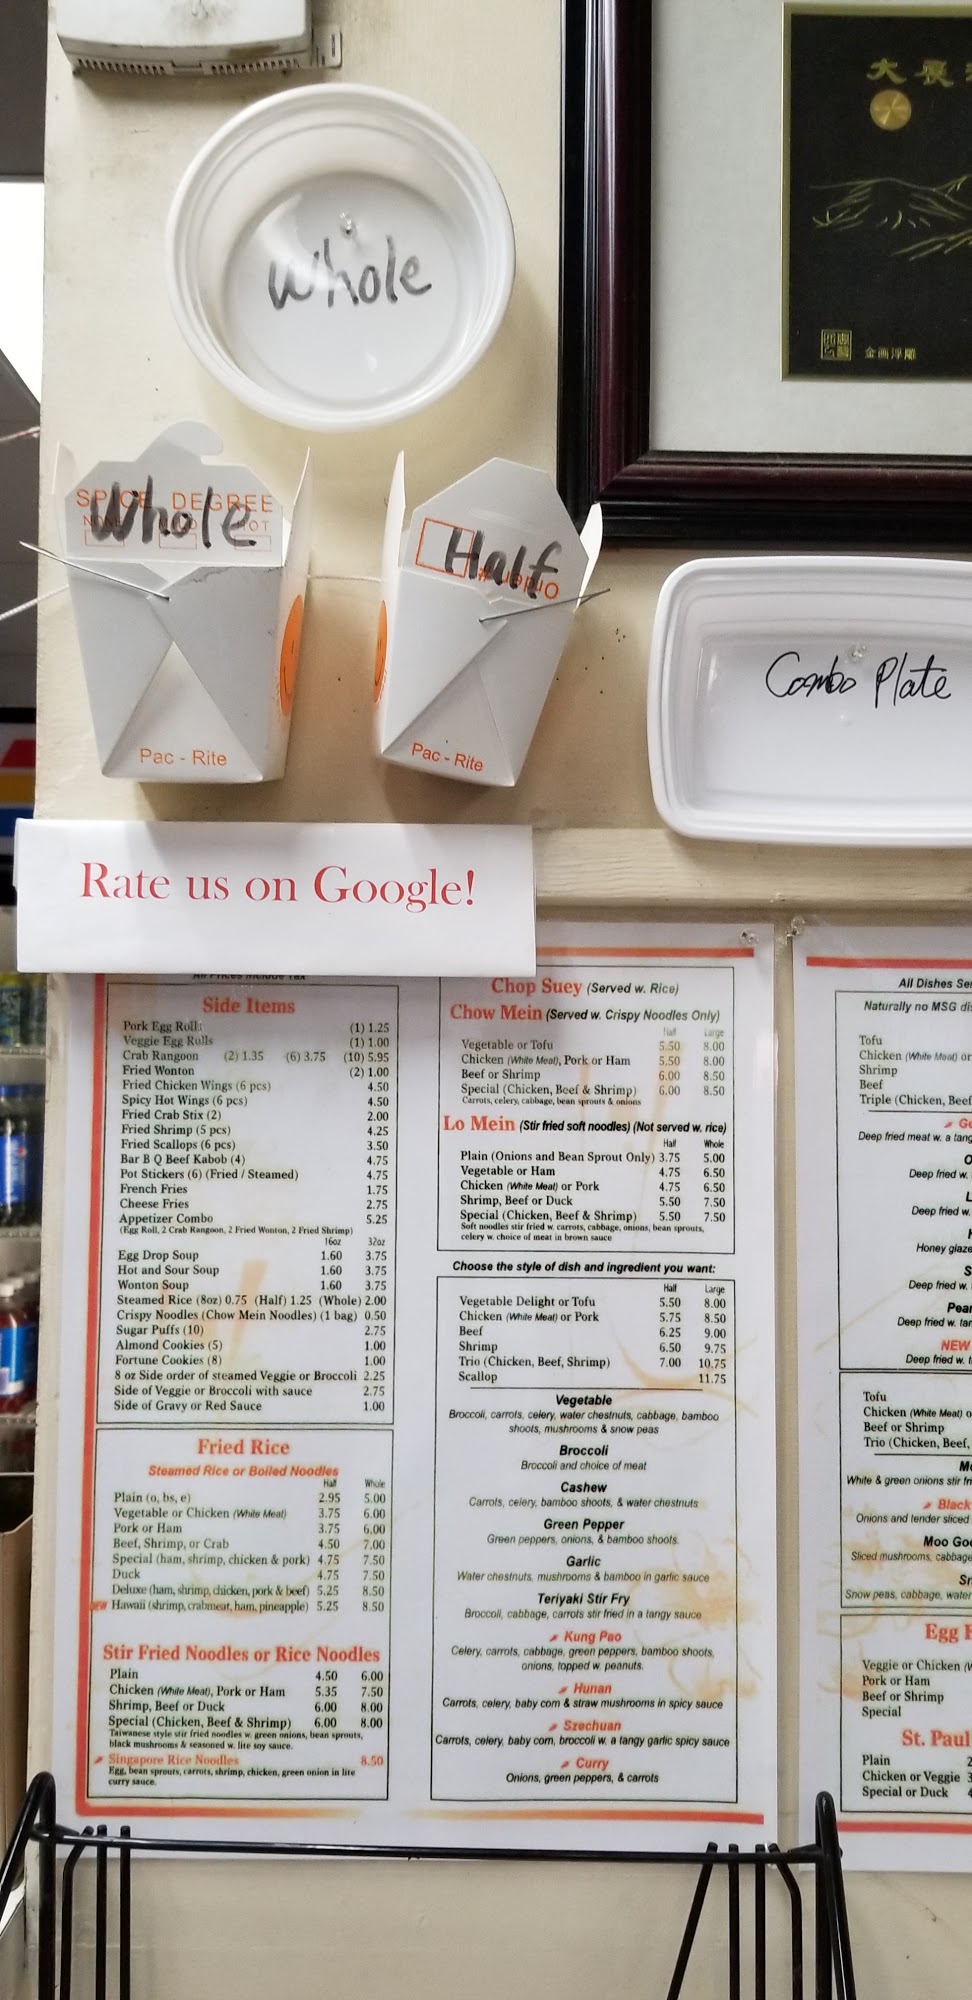 大展
金画浮雕
Whole
SPICE DEGREE
Whole
HOT
Half
Order #
Pac - Rite
Pac - Rite
Combo Plate
Rate us on Google!
All Prices Include Tax
Side Items
Pork Egg Rolls (1) 1.25
Veggie Egg Rolls (1) 1.00
Crab Rangoon (2) 1.35 (6) 3.75 (10) 5.95
Fried Wonton (2) 1.00
Fried Chicken Wings (6 pcs) 4.50
Spicy Hot Wings (6 pcs) 4.50
Fried Crab Stix (2) 2.00
Fried Shrimp (5 pcs) 4.25
Fried Scallops (6 pcs) 3.50
Bar B Q Beef Kabob (4) 4.75
Pot Stickers (6) (Fried / Steamed) 4.75
French Fries 1.75
Cheese Fries 2.75
Appetizer Combo 5.25
(Egg Roll, 2 Crab Rangoon, 2 Fried Wonton, 2 Fried Shrimp)
16oz 32oz
Egg Drop Soup 1.60 3.75
Hot and Sour Soup 1.60 3.75
Wonton Soup 1.60 3.75
Steamed Rice (8oz) 0.75 (Half) 1.25 (Whole) 2.00
Crispy Noodles (Chow Mein Noodles) (1 bag) 0.50
Sugar Puffs (10) 2.75
Almond Cookies (5) 1.00
Fortune Cookies (8) 1.00
8 oz Side order of steamed Veggie or Broccoli 2.25
Side of Veggie or Broccoli with sauce 2.75
Side of Gravy or Red Sauce 1.00
Fried Rice
Steamed Rice or Boiled Noodles
Half Whole
Plain (o, bs, e) 2.95 5.00
Vegetable or Chicken (White Meat) 3.75 6.00
Pork or Ham 3.75 6.00
Beef, Shrimp, or Crab 4.50 7.00
Special (ham, shrimp, chicken & pork) 4.75 7.50
Duck 4.75 7.50
Deluxe (ham, shrimp, chicken, pork & beef) 5.25 8.50
NEW Hawaii (shrimp, crabmeat, ham, pineapple) 5.25 8.50
Stir Fried Noodles or Rice Noodles
Plain 4.50 6.00
Chicken (White Meat), Pork or Ham 5.35 7.50
Shrimp, Beef or Duck 6.00 8.00
Special (Chicken, Beef & Shrimp) 6.00 8.00
Taiwanese style stir fried noodles w. green onions, bean sprouts,
black mushrooms & seasoned w. lite soy sauce.
Singapore Rice Noodles 8.50
Egg, bean sprouts, carrots, shrimp, chicken, green onion in lite
curry sauce.
Chop Suey (Served w. Rice)
Chow Mein (Served w. Crispy Noodles Only)
Half Large
Vegetable or Tofu 5.50 8.00
Chicken (White Meat), Pork or Ham 5.50 8.00
Beef or Shrimp 6.00 8.50
Special (Chicken, Beef & Shrimp) 6.00 8.50
Carrots, celery, cabbage, bean sprouts & onions
Lo Mein (Stir fried soft noodles) (Not served w. rice)
Half Whole
Plain (Onions and Bean Sprout Only) 3.75 5.00
Vegetable or Ham 4.75 6.50
Chicken (White Meat) or Pork 4.75 6.50
Shrimp, Beef or Duck 5.50 7.50
Special (Chicken, Beef & Shrimp) 5.50 7.50
Soft noodles stir fried w. carrots, cabbage, onions, bean sprouts,
celery w. choice of meat in brown sauce
Choose the style of dish and ingredient you want:
Half Large
Vegetable Delight or Tofu 5.50 8.00
Chicken (White Meat) or Pork 5.75 8.50
Beef 6.25 9.00
Shrimp 6.50 9.75
Trio (Chicken, Beef, Shrimp) 7.00 10.75
Scallop 11.75
Vegetable
Broccoli, carrots, celery, water chestnuts, cabbage, bamboo
shoots, mushrooms & snow peas
Broccoli
Broccoli and choice of meat
Cashew
Carrots, celery, bamboo shoots, & water chestnuts
Green Pepper
Green peppers, onions, & bamboo shoots.
Garlic
Water chestnuts, mushrooms & bamboo in garlic sauce
Teriyaki Stir Fry
Broccoli, cabbage, carrots stir fried in a tangy sauce
Kung Pao
Celery, carrots, cabbage, green peppers, bamboo shoots,
onions, topped w. peanuts.
Hunan
Carrots, celery, baby corn & straw mushrooms in spicy sauce
Szechuan
Carrots, celery, baby corn, broccoli w. a tangy garlic spicy sauce
Curry
Onions, green peppers, & carrots
All Dishes Ser
Naturally no MSG di
Tofu
Chicken (White Meat) or
Shrimp
Beef
Triple (Chicken, Beef
Ge
Deep fried meat w. a tang
O
Deep fried w.
L
Deep fried w.
H
Honey glaze
S
Deep fried w.
Pear
Deep fried w. tar
NEW
Deep fried w. t
Tofu
Chicken (White Meat) o
Beef or Shrimp
Trio (Chicken, Beef,
Mo
White & green onions stir fr
Black
Onions and tender sliced
Moo Goo
Sliced mushrooms, cabbage
Sn
Snow peas, cabbage, water
Egg F
Veggie or Chicken (W
Pork or Ham
Beef or Shrimp
Special
St. Paul
Plain 2
Chicken or Veggie 3
Special or Duck 4